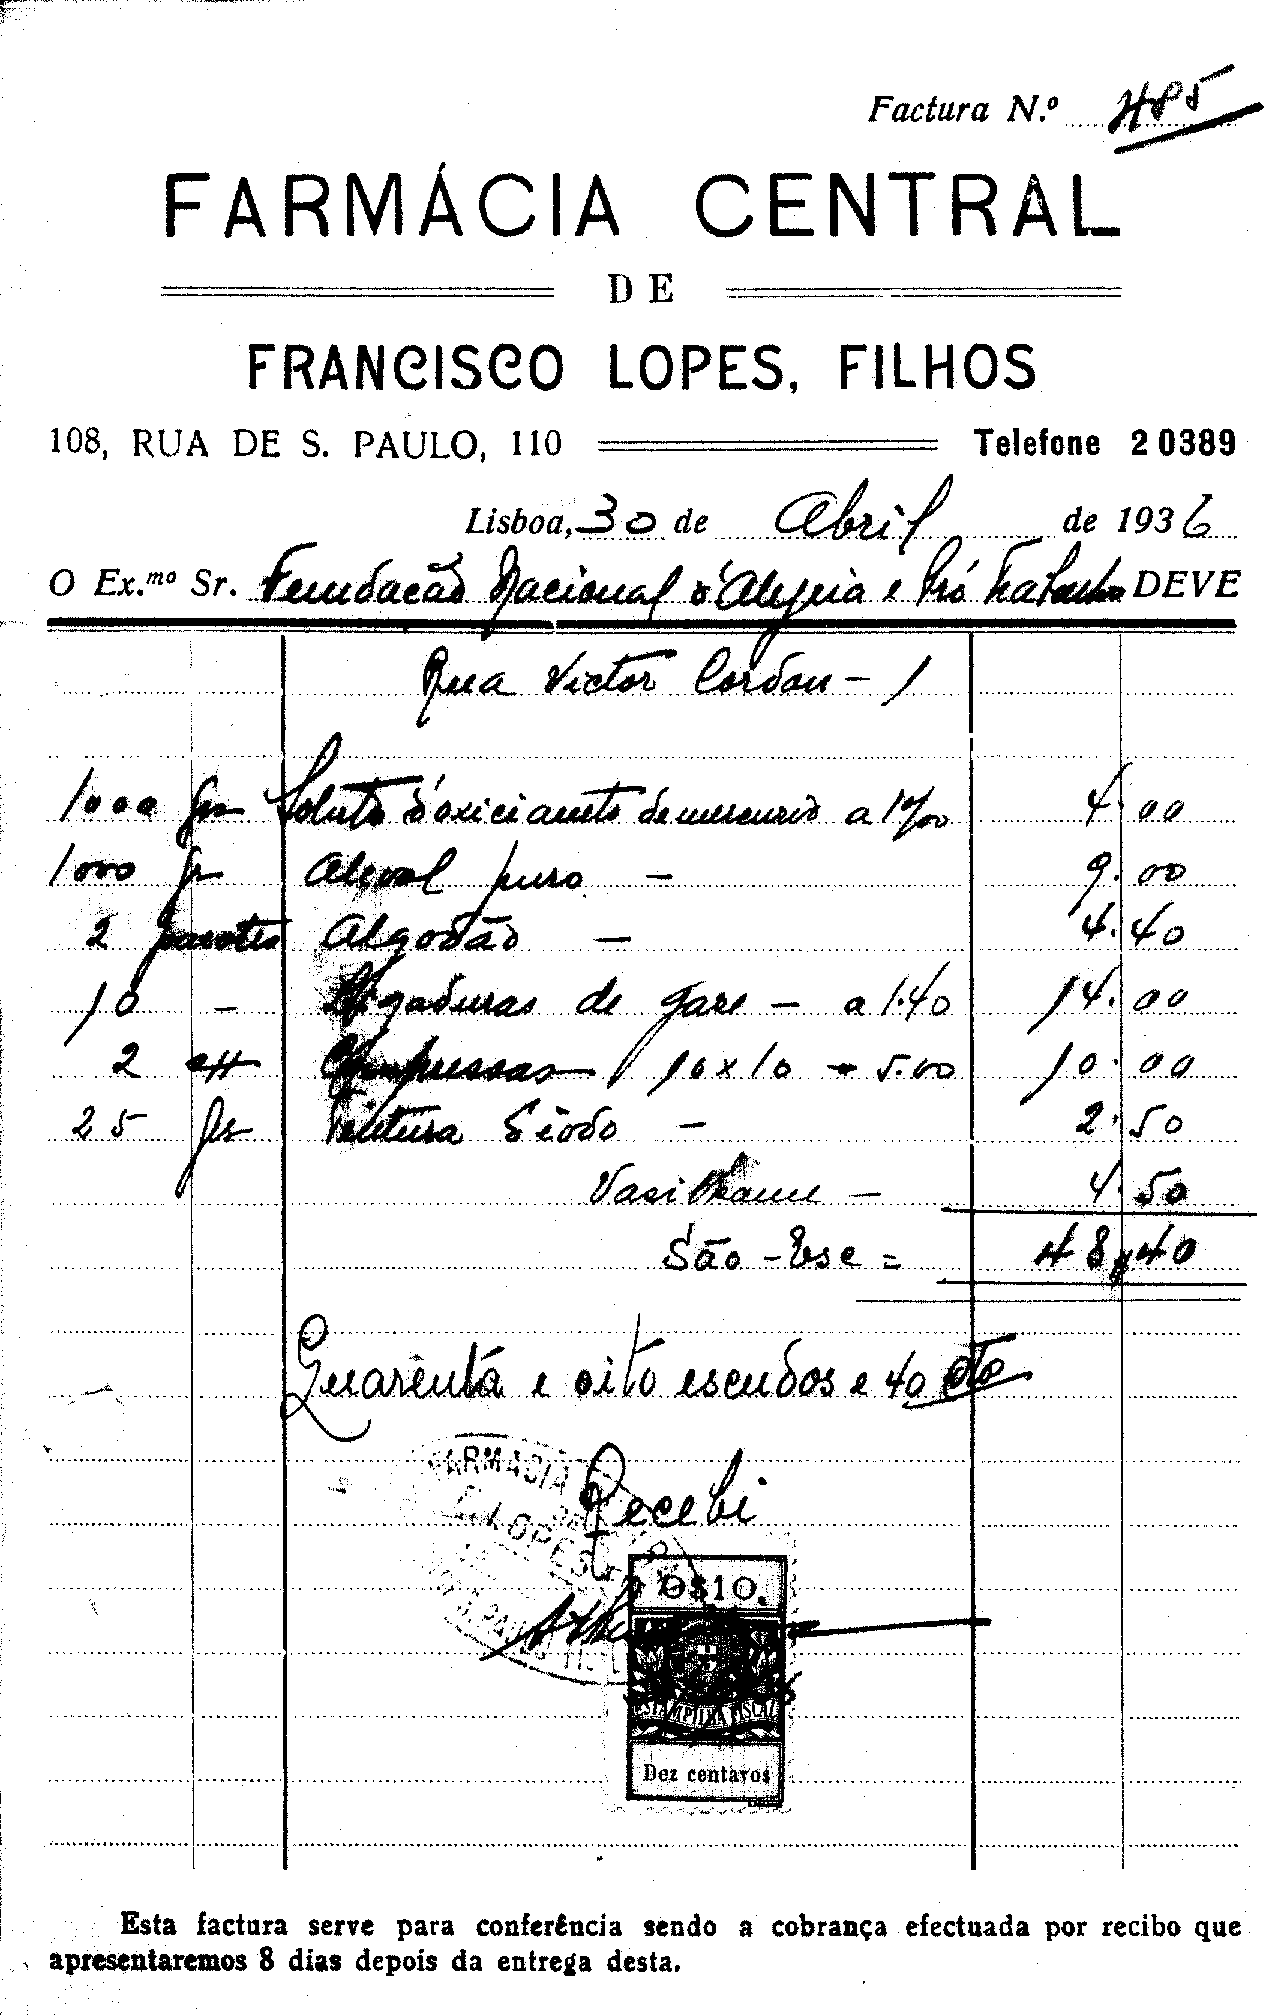 Factura N.º 485
FARMÁCIA CENTRAL
DE
FRANCISCO LOPES, FILHOS
108, RUA DE S. PAULO, 110 Telefone 20389
Lisboa, 30 de Abril de 1936
O Ex.mo Sr. Fundação Nacional d'Alegria e Pró Trabalho DEVE
Rua Victor Cordon - 1
1000 grs Soluto d'oxicianeto de mercurio a 1%00 4.00
1000 gr Alcool puro - 9.00
2 pacotes Algodão - 4.40
10 - Ligaduras de gase - a 1.40 14.00
2 cx Compressas 10x10 - 5.00 10.00
25 grs Tintura d'iodo - 2.50
Vasilhame - 4.50
São - Esc = 48,40
Quarenta e oito escudos e 40 cto
Recebi
FARMACIA
LOPES
0$10.
ESTAMPILHA FISCAL
Dez centavos
Esta factura serve para conferência sendo a cobrança efectuada por recibo que
apresentaremos 8 dias depois da entrega desta.